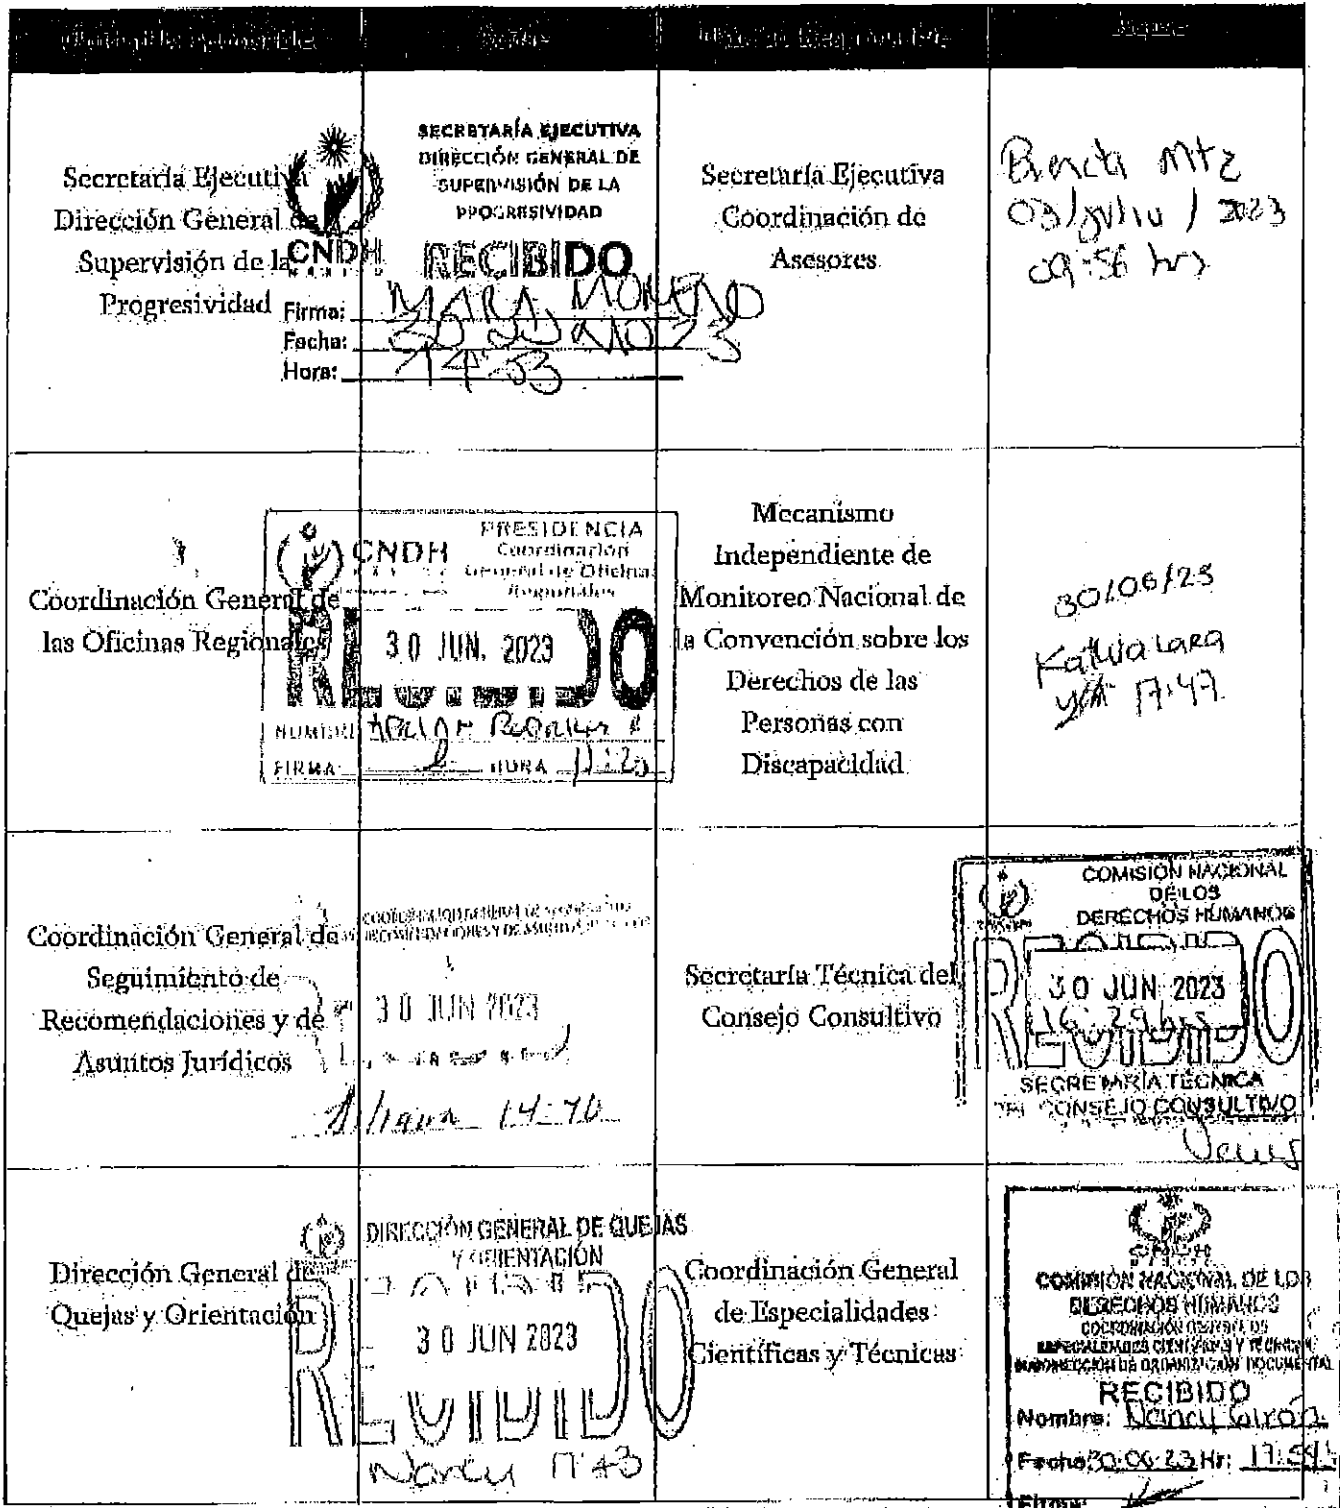 Secretaría Ejecutiva
Dirección General de
Supervisión de la
Progresividad
CNDH
SECRETARÍA EJECUTIVA
DIRECCIÓN GENERAL DE
SUPERVISIÓN DE LA
PROGRESIVIDAD
RECIBIDO
Firma: MARA
Fecha:
Hora: 14:53
Secretaría Ejecutiva
Coordinación de
Asesores
Mtz
03/julio/2023
09:56 hrs
Coordinación General de
las Oficinas Regionales
CNDH
PRESIDENCIA
Coordinación
General de Oficinas
Regionales
RECIBIDO
30 JUN. 2023
FIRMA HORA
Mecanismo
Independiente de
Monitoreo Nacional de
la Convención sobre los
Derechos de las
Personas con
Discapacidad
30/06/23
Lara
17:47
Coordinación General de
Seguimiento de
Recomendaciones y de
Asuntos Jurídicos
30 JUN 2023
Secretaría Técnica del
Consejo Consultivo
COMISIÓN NACIONAL
DE LOS
DERECHOS HUMANOS
RECIBIDO
30 JUN 2023
16:29 hrs
SECRETARÍA TÉCNICA
DEL CONSEJO CONSULTIVO
Dirección General de
Quejas y Orientación
DIRECCIÓN GENERAL DE QUEJAS
Y ORIENTACIÓN
RECIBIDO
30 JUN 2023
Nancy 17:43
Coordinación General
de Especialidades
Científicas y Técnicas
COMISIÓN NACIONAL DE LOS
DERECHOS HUMANOS
COORDINACIÓN GENERAL DE
ESPECIALIDADES CIENTÍFICAS Y TÉCNICAS
RECIBIDO
Nombre: Nancy Girón
Fecha: 30-06-23 Hr: 17:54
Firma: